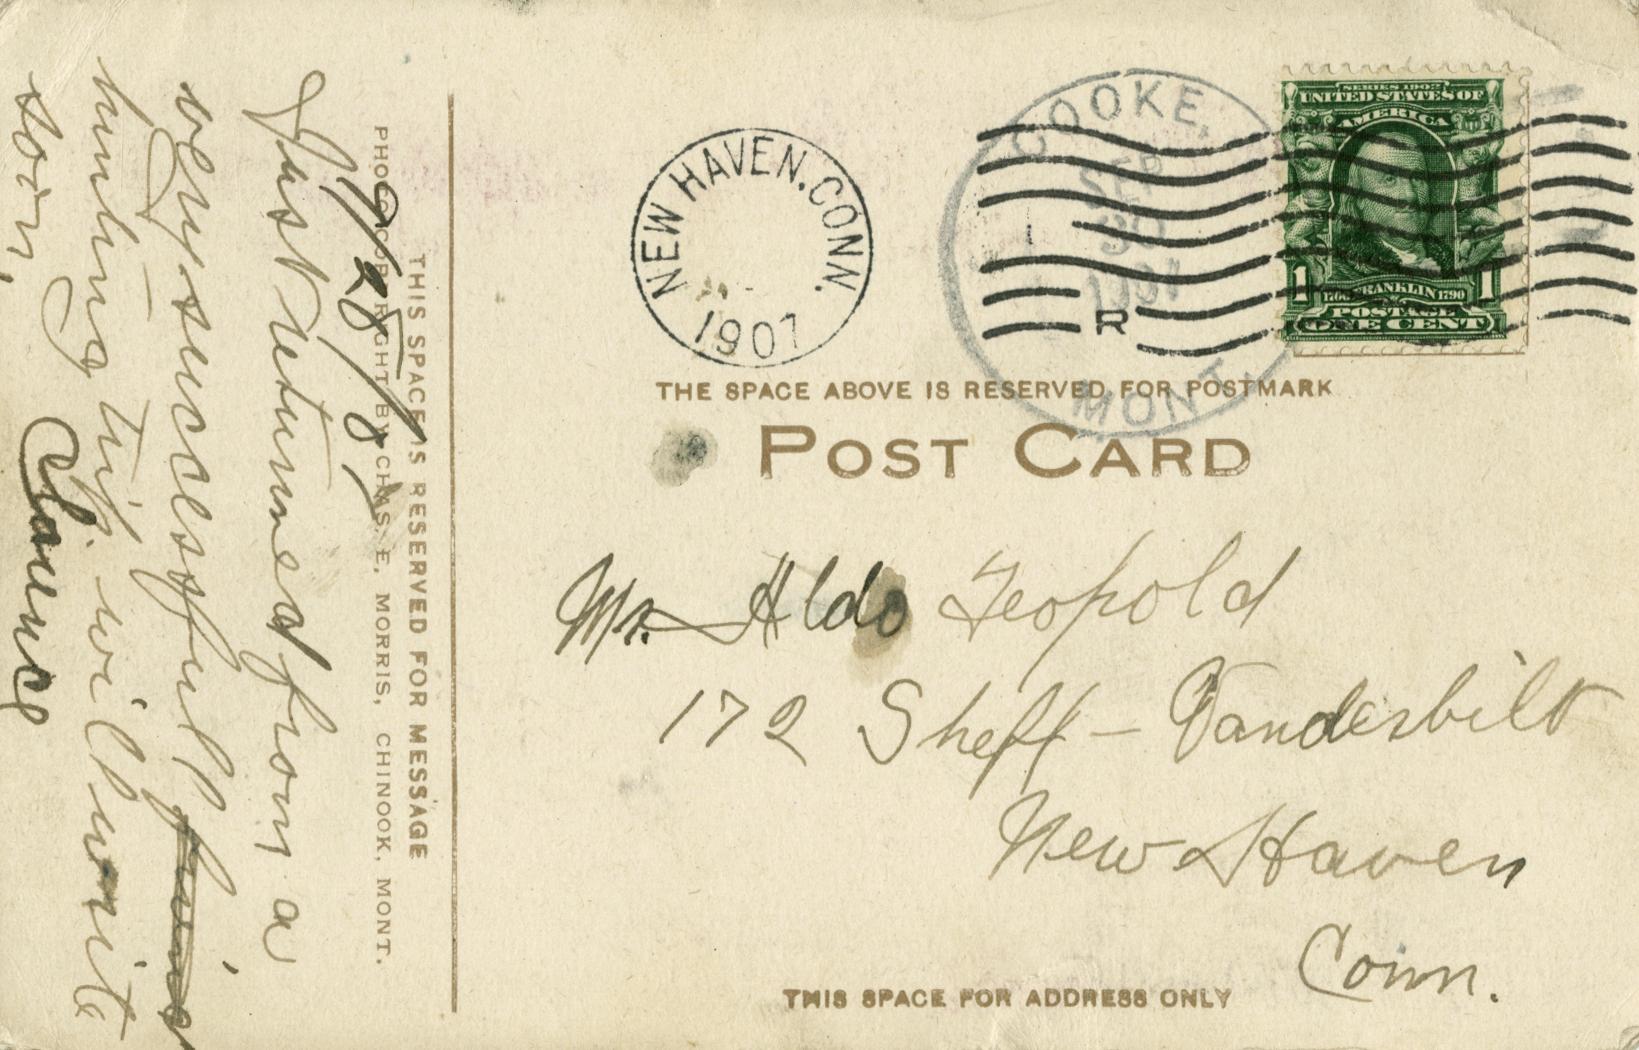 9/28/8,
Just returned from a
very successful
hunting trip. will write
soon,
Clarence
THIS SPACE IS RESERVED FOR MESSAGE
PHOTO COPYRIGHT BY CHAS. E. MORRIS, CHINOOK, MONT.
NEW HAVEN. CONN.
1907
COOKE,
SEP
30
MONT.
R
SERIES 1902
UNITED STATES OF
AMERICA
1 1
1706 FRANKLIN 1790
POSTAGE
ONE CENT
THE SPACE ABOVE IS RESERVED FOR POSTMARK
POST CARD
Mr. Aldo Leopold
172 Sheff-Vanderbilt
New Haven
Conn.
THIS SPACE FOR ADDRESS ONLY